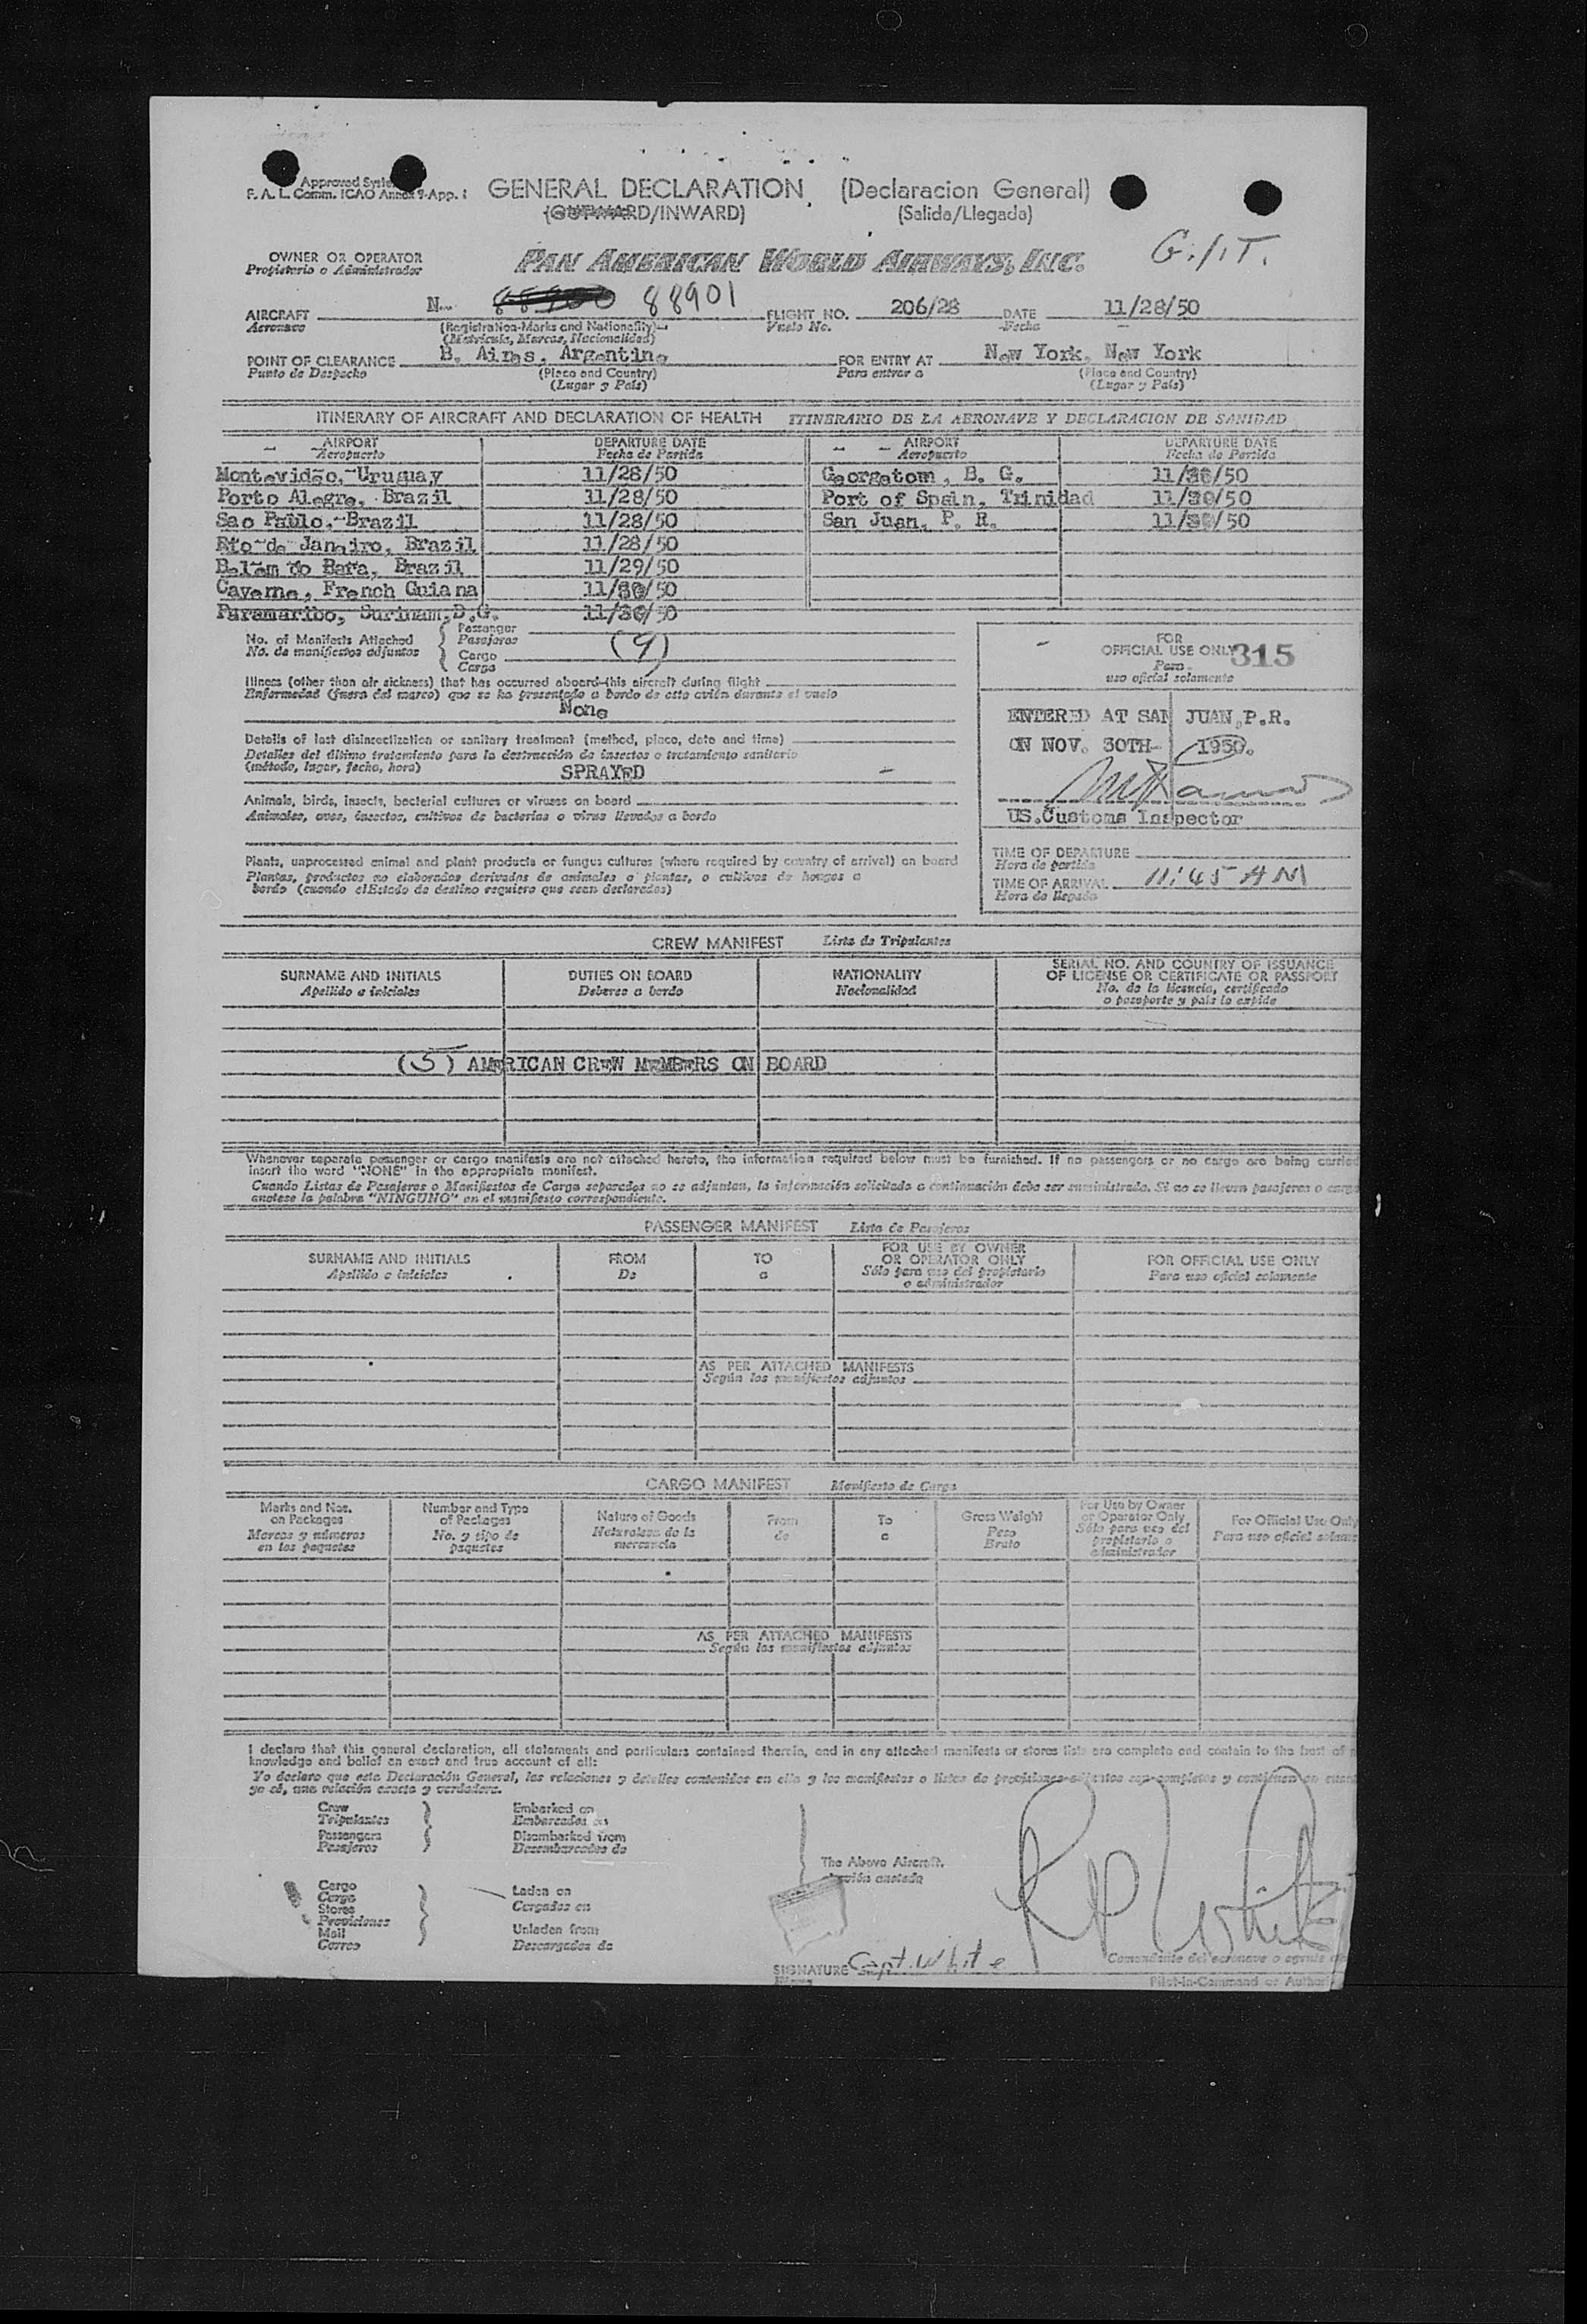 Approved System
F. A. L. Comm. ICAO Annex 9-App. 1
GENERAL DECLARATION (Declaracion General)
(OUTWARD/INWARD) (Salida/Llegada)
G./.T.
OWNER OR OPERATOR
Propietario o Administrador
PAN AMERICAN WORLD AIRWAYS, INC.
AIRCRAFT N- 88901 FLIGHT NO. 206/28 DATE 11/28/50
Aeronave (Registration-Marks and Nationality) Vuelo No. Fecha
(Matricula, Marcas, Nacionalidad)
POINT OF CLEARANCE B. Aires, Argentina FOR ENTRY AT New York, New York
Punto de Despacho (Place and Country) Para entrar a (Place and Country)
(Lugar y País) (Lugar y País)
ITINERARY OF AIRCRAFT AND DECLARATION OF HEALTH ITINERARIO DE LA AERONAVE Y DECLARACION DE SANIDAD
AIRPORT DEPARTURE DATE AIRPORT DEPARTURE DATE
Aeropuerto Fecha de Partida Aeropuerto Fecha de Partida
Montevideo, Uruguay 11/28/50 Georgetom, B. G. 11/30/50
Porto Alegre, Brazil 11/28/50 Port of Spain, Trinidad 11/30/50
Sao Paulo, Brazil 11/28/50 San Juan, P. R. 11/30/50
Rio de Janairo, Brazil 11/28/50
Belem do Para, Brazil 11/29/50
Cayenne, French Guiana 11/30/50
Paramaribo, Surinam,D.G. 11/30/50
No. of Manifests Attached Passenger
No. de manifiestos adjuntos Pasajeros (9)
Cargo
Carga
FOR
OFFICIAL USE ONLY 315
Para
uso oficial solamente
Illness (other than air sickness) that has occurred aboard this aircraft during flight
Enfermedad (fuera del mareo) que se ha presentado a bordo de este avión durante el vuelo
None
ENTERED AT SAN JUAN,P.R.
ON NOV. 30TH- 1950.
US.Customs Inspector
Details of last disinsectization or sanitary treatment (method, place, date and time)
Detalles del último tratamiento para la destrucción de insectos o tratamiento sanitario
(método, lugar, fecha, hora)
SPRAYED
Animals, birds, insects, bacterial cultures or viruses on board
Animales, aves, insectos, cultivos de bacterias o virus llevados a bordo
TIME OF DEPARTURE
Hora de partida
TIME OF ARRIVAL 11:45 AM
Hora de llegada
Plants, unprocessed animal and plant products or fungus cultures (where required by country of arrival) on board
Plantas, productos no elaborados derivados de animales o plantas, o cultivos de hongos a
bordo (cuando el Estado de destino requiere que sean declarados)
CREW MANIFEST Lista de Tripulantes
SURNAME AND INITIALS DUTIES ON BOARD NATIONALITY SERIAL NO. AND COUNTRY OF ISSUANCE
OF LICENSE OR CERTIFICATE OR PASSPORT
Apellido e iniciales Deberes a bordo Nacionalidad No. de la licencia, certificado
o pasaporte y país lo expide
(5) AMERICAN CREW MEMBERS ON BOARD
Whenever separate passenger or cargo manifests are not attached hereto, the information required below must be furnished. If no passengers or no cargo are being carried
insert the word "NONE" in the appropriate manifest.
Cuando Listas de Pasajeros o Manifiestos de Carga separados no se adjuntan, la información solicitada a continuación debe ser suministrada. Si no se llevan pasajeros o carga
anotese la palabra "NINGUNO" en el manifiesto correspondiente.
PASSENGER MANIFEST Lista de Pasajeros
SURNAME AND INITIALS FROM TO FOR USE BY OWNER
OR OPERATOR ONLY FOR OFFICIAL USE ONLY
Apellido e iniciales De a Sólo para uso del propietario
o administrador Para uso oficial solamente
AS PER ATTACHED MANIFESTS
Según los manifiestos adjuntos
CARGO MANIFEST Manifiesto de Carga
Marks and Nos.
on Packages
Marcas y números
en los paquetes
Number and Type
of Packages
No. y tipo de
paquetes
Nature of Goods
Naturaleza de la
mercancia
From
de
To
a
Gross Weight
Peso
Bruto
For Use by Owner
or Operator Only
Sólo para uso del
propietario o
administrador
For Official Use Only
Para uso oficial solame
AS PER ATTACHED MANIFESTS
Según los manifiestos adjuntos
I declare that this general declaration, all statements and particulars contained therein, and in any attached manifests or stores lists are complete and contain to the best of m
knowledge and belief an exact and true account of all:
Yo declaro que esta Declaración General, las relaciones y detalles contenidos en ella y los manifiestos o listas de provisiones adjuntos son completos y contienen en cuan
yo sé, una relación exacta y verdadera.
Crew Embarked on
Tripulantes Embarcados en
Passengers Disembarked from
Pasajeros Desembarcados de
The Above Aircraft.
avión anotado
Cargo Laden on
Carga Cargados en
Stores
Provisiones
Mail Unladen from
Correo Descargados de
R P White
SIGNATURE Capt. White
Comandante del aeronave o agente
Pilot-in-Command or Authori